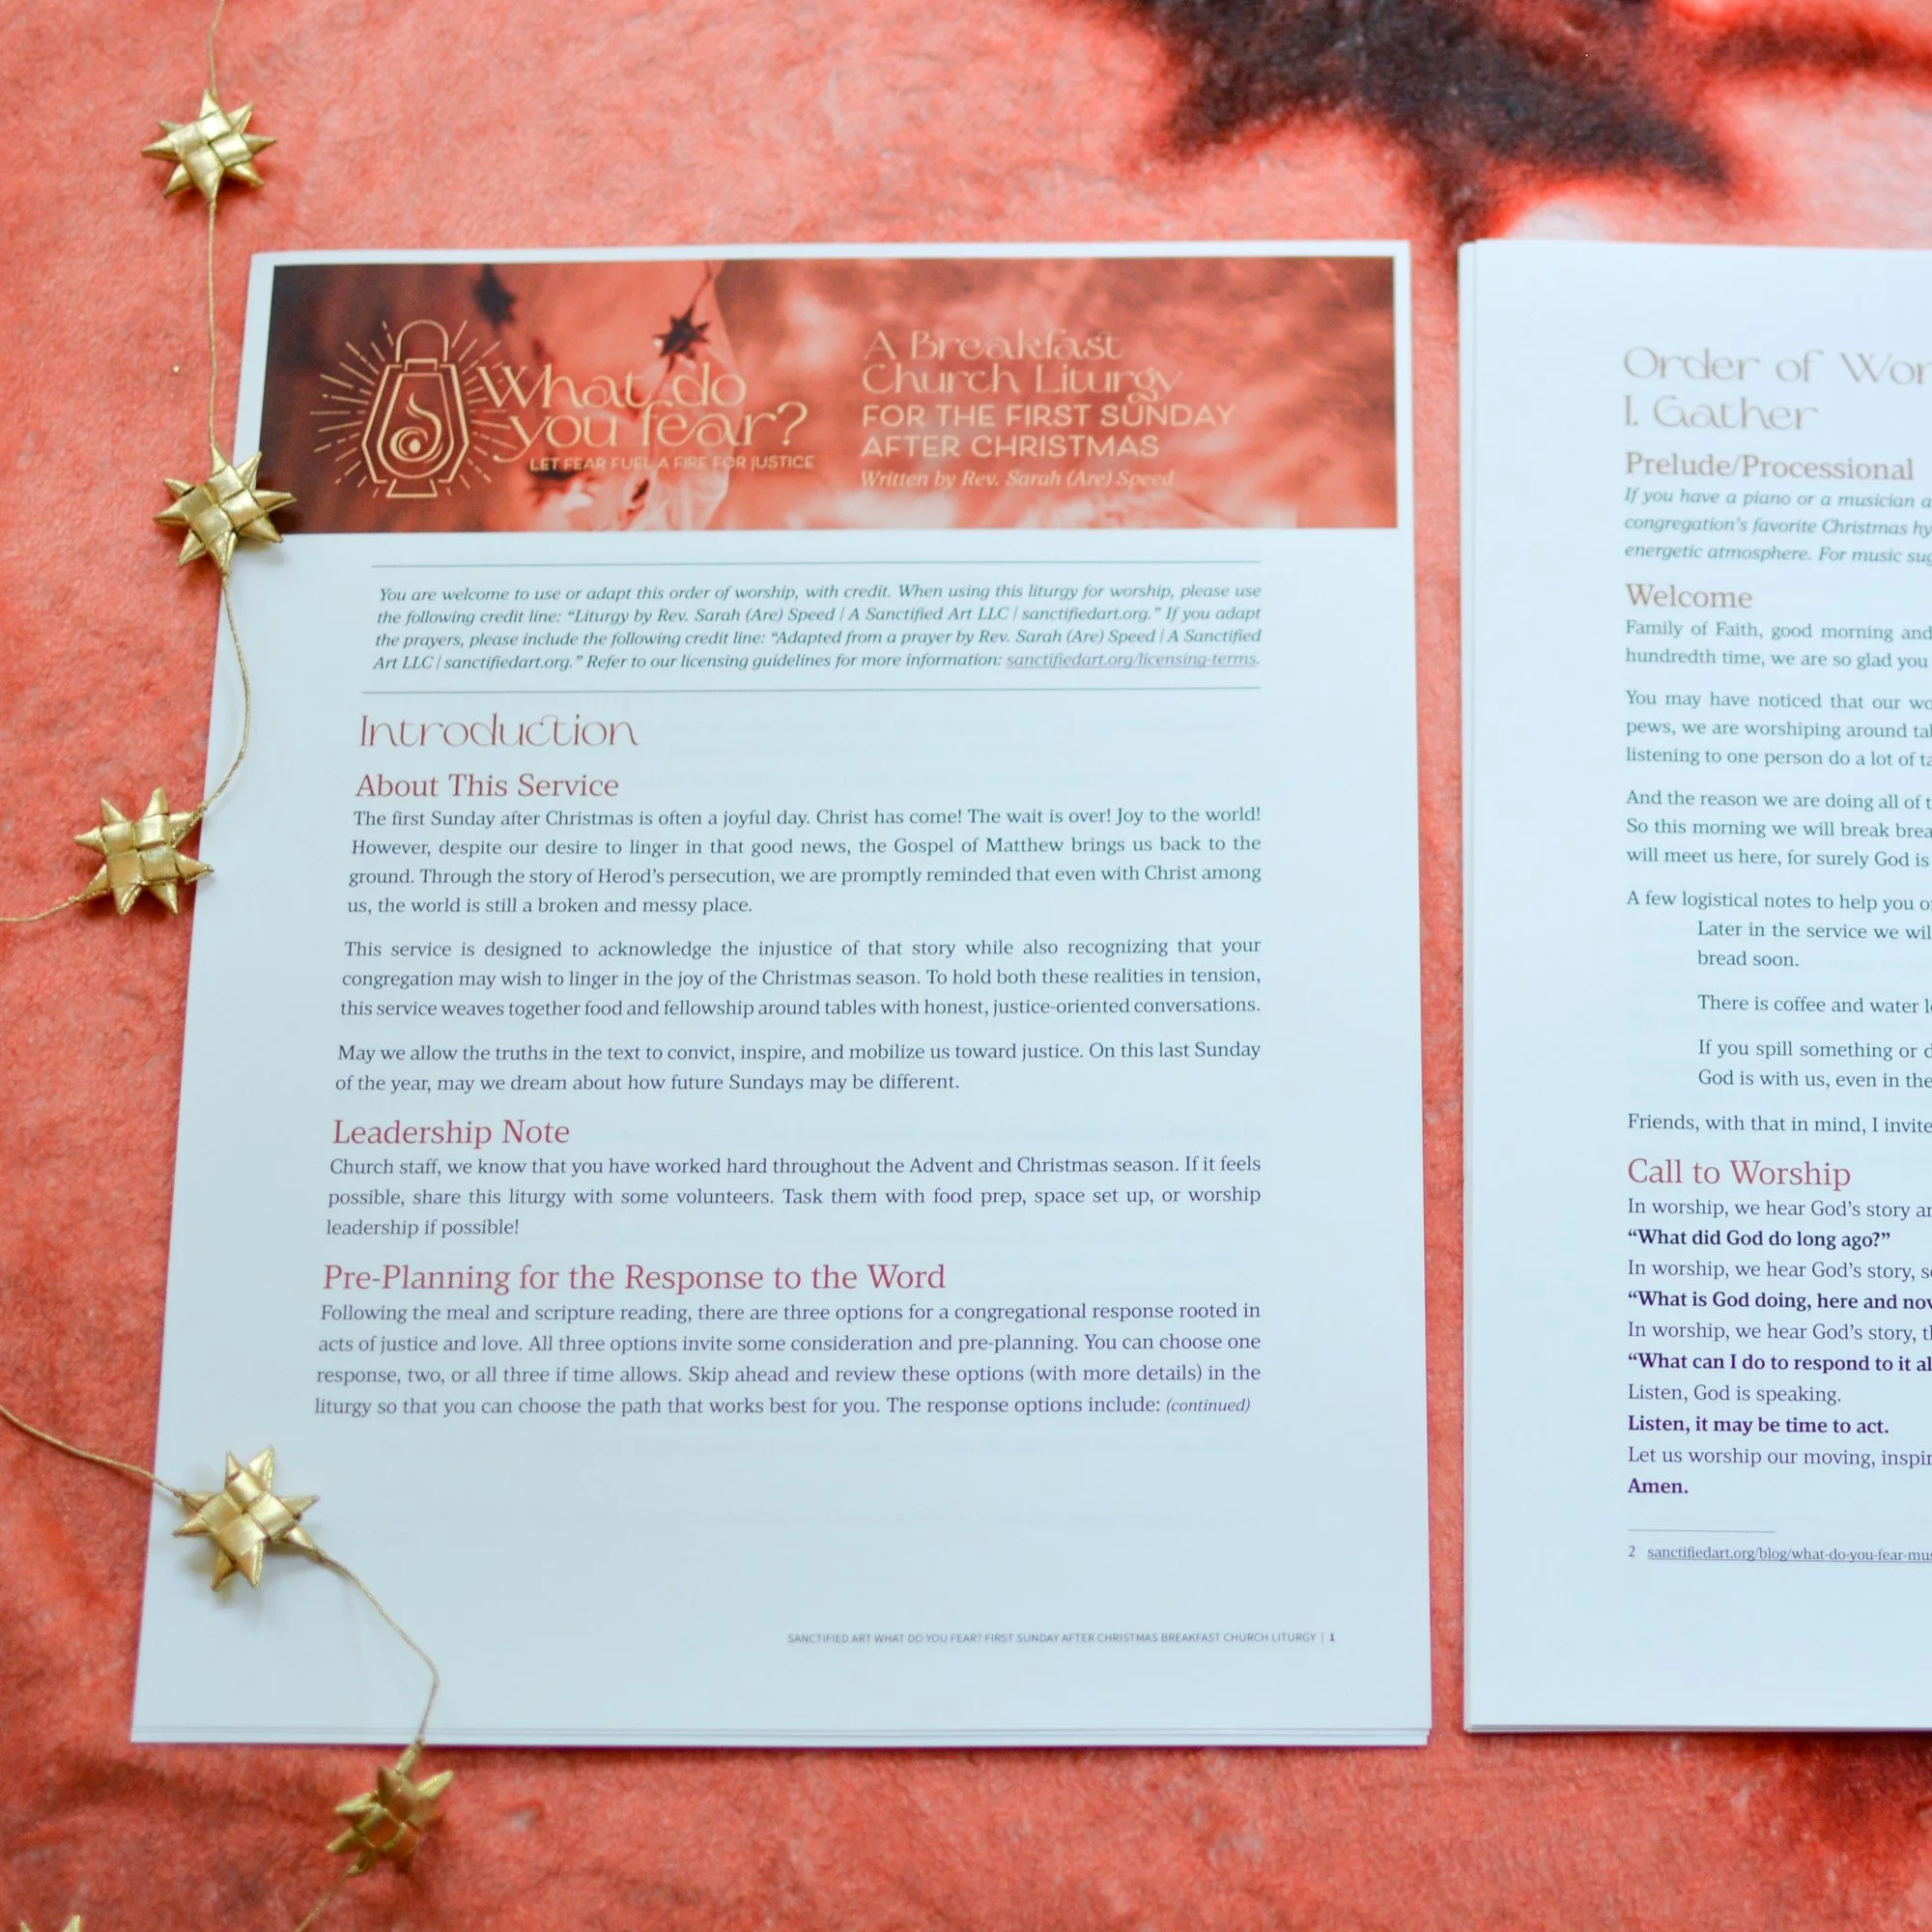 What do
you fear?
LET FEAR FUEL A FIRE FOR JUSTICE
A Breakfast
Church Liturgy
FOR THE FIRST SUNDAY
AFTER CHRISTMAS
Written by Rev. Sarah (Are) Speed
You are welcome to use or adapt this order of worship, with credit. When using this liturgy for worship, please use
the following credit line: “Liturgy by Rev. Sarah (Are) Speed | A Sanctified Art LLC | sanctifiedart.org.” If you adapt
the prayers, please include the following credit line: “Adapted from a prayer by Rev. Sarah (Are) Speed | A Sanctified
Art LLC | sanctifiedart.org.” Refer to our licensing guidelines for more information: sanctifiedart.org/licensing-terms.
Introduction
About This Service
The first Sunday after Christmas is often a joyful day. Christ has come! The wait is over! Joy to the world!
However, despite our desire to linger in that good news, the Gospel of Matthew brings us back to the
ground. Through the story of Herod’s persecution, we are promptly reminded that even with Christ among
us, the world is still a broken and messy place.
This service is designed to acknowledge the injustice of that story while also recognizing that your
congregation may wish to linger in the joy of the Christmas season. To hold both these realities in tension,
this service weaves together food and fellowship around tables with honest, justice-oriented conversations.
May we allow the truths in the text to convict, inspire, and mobilize us toward justice. On this last Sunday
of the year, may we dream about how future Sundays may be different.
Leadership Note
Church staff, we know that you have worked hard throughout the Advent and Christmas season. If it feels
possible, share this liturgy with some volunteers. Task them with food prep, space set up, or worship
leadership if possible!
Pre-Planning for the Response to the Word
Following the meal and scripture reading, there are three options for a congregational response rooted in
acts of justice and love. All three options invite some consideration and pre-planning. You can choose one
response, two, or all three if time allows. Skip ahead and review these options (with more details) in the
liturgy so that you can choose the path that works best for you. The response options include: (continued)
SANCTIFIED ART WHAT DO YOU FEAR? FIRST SUNDAY AFTER CHRISTMAS BREAKFAST CHURCH LITURGY | 1
Order of
I. Gather
Prelude/Processional
If you have a piano or a musician
congregation’s favorite Christmas
energetic atmosphere. For music
Welcome
Family of Faith, good morning and
hundredth time, we are so glad you
You may have noticed that our
pews, we are worshiping around
listening to one person do a lot of
And the reason we are doing all of
So this morning we will break
will meet us here, for surely God is
A few logistical notes to help you
Later in the service we
bread soon.
There is coffee and water
If you spill something or
God is with us, even in the
Friends, with that in mind, I invite
Call to Worship
In worship, we hear God’s story
“What did God do long ago?”
In worship, we hear God’s story,
“What is God doing, here and
In worship, we hear God’s story,
“What can I do to respond to it
Listen, God is speaking.
Listen, it may be time to act.
Let us worship our moving,
Amen.
2 sanctifiedart.org/blog/what-do-you-fear-mus